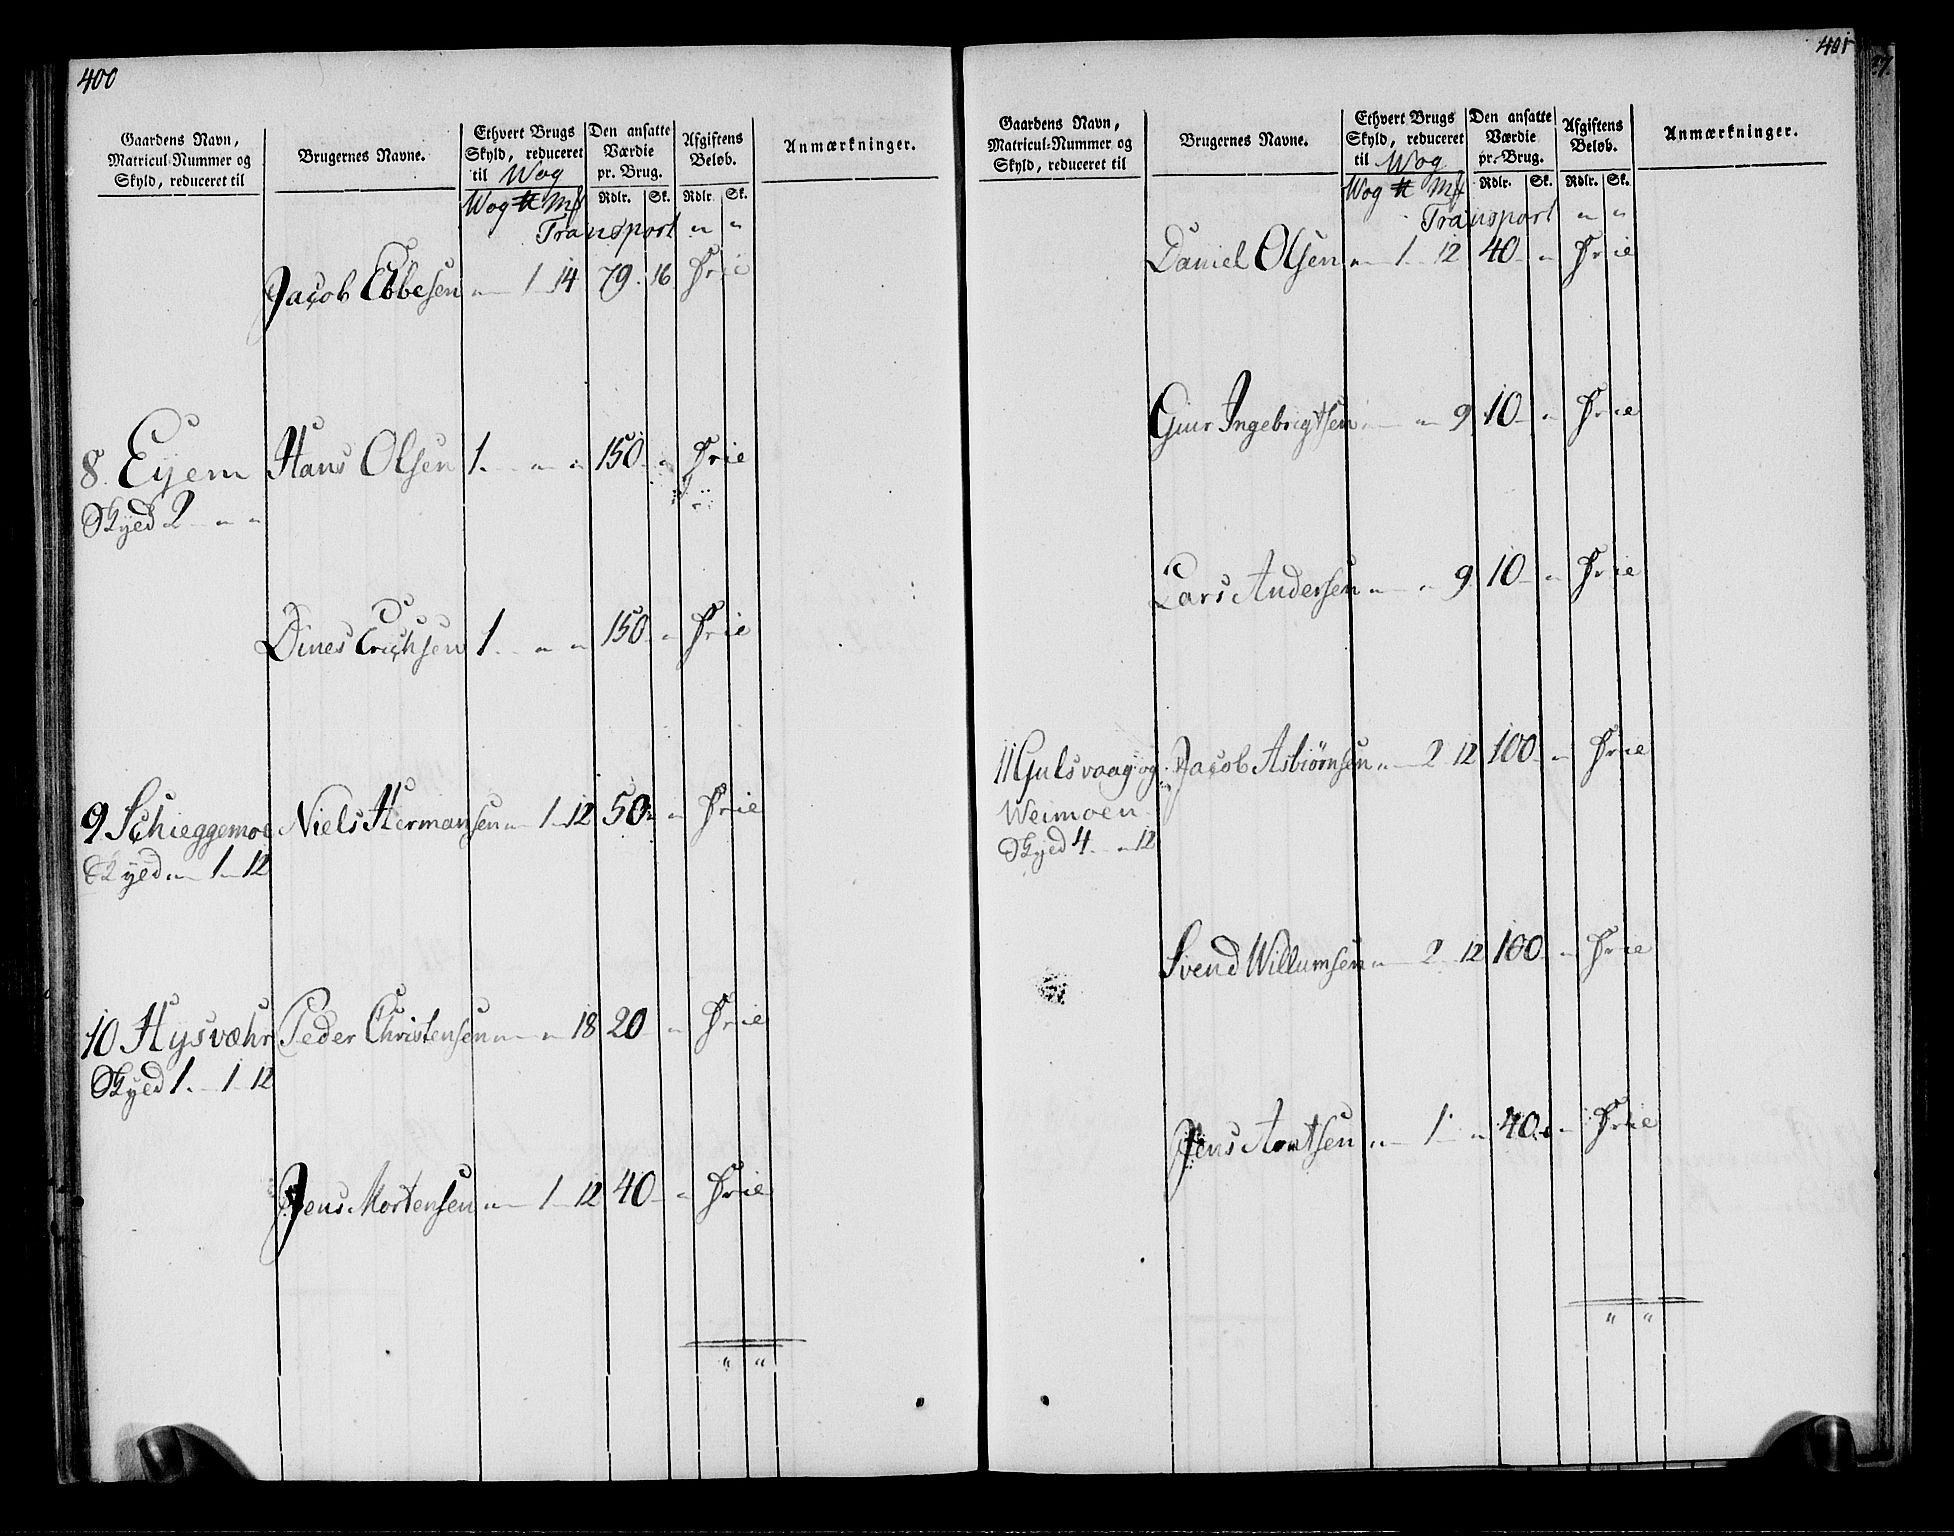 400
Gaardens Navn, Matricul-Nummer og Skyld, reduceret til
Brugernes Navne.
Ethvert Brugs Skyld, reduceret til Wog
Den ansatte Værdie pr. Brug.
Afgiftens Beløb.
Anmærkninger.
Wog ℔ Mk Rdlr. Sk. Rdlr. Sk.
Transport " "
Jacob Ebbesen " 1 14 79 16 Frie
8. Eyem Hans Olsen 1. " " 150 " Frie
Skyld 2 " "
Dines Erichsen 1. " " 150 " Frie
9 Schieggemoe Niels Hermansen " 1 12 50 " Frie
Skyld " 1 12
10 Hysvæhr Peder Christensen " " 18 20 " Frie
Skyld 1. 1 12
Jens Mortensen " 1 12 40 " Frie
" "
401
Gaardens Navn, Matricul-Nummer og Skyld, reduceret til
Brugernes Navne.
Ethvert Brugs Skyld, reduceret til Wog
Den ansatte Værdie pr. Brug.
Afgiftens Beløb.
Anmærkninger.
Wog ℔ Mk Rdlr. Sk. Rdlr. Sk.
Transport " "
Daniel Olsen " 1 12 40 " Frie
Giur Ingebrigtsen " " 9 10 " Frie
Lars Andersen " " 9 10 " Frie
11 Gulsvaag og Jacob Asbiørnsen " 2 12 100 " Frie
Weimoen
Skyld 4 " 12
Svend Willumsen " 2 12 100 " Frie
Jens Arntsen " 1 " 40 " Frie
" "